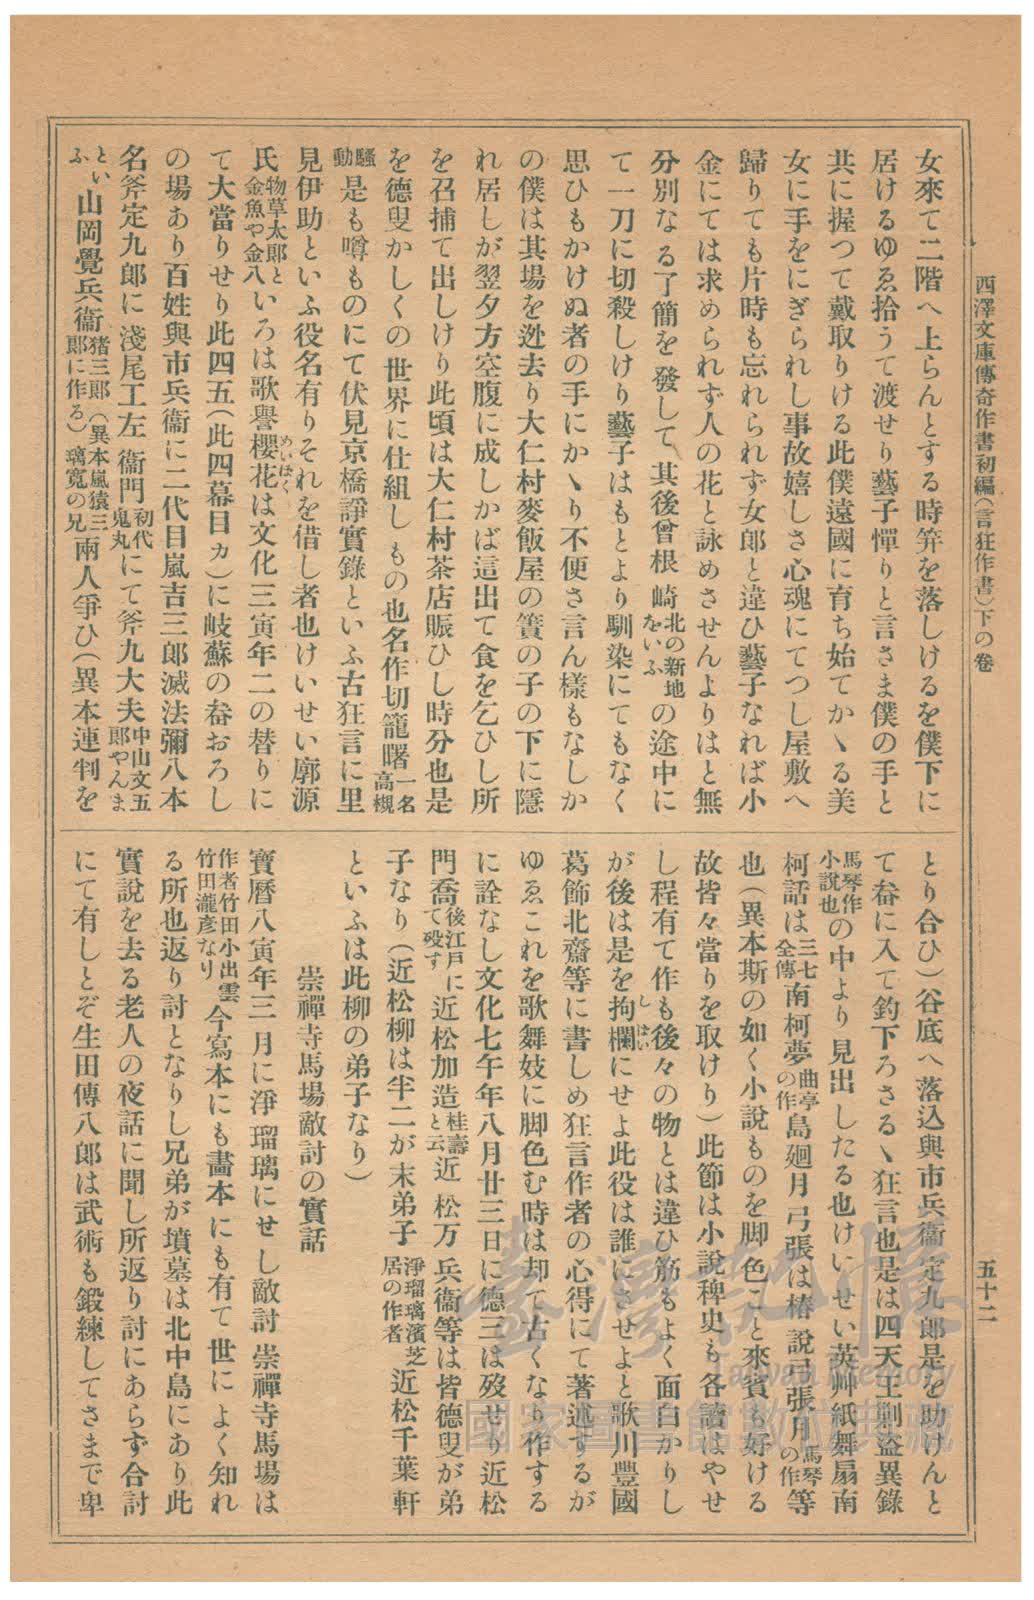 西澤文庫傳奇作書初編(言狂作書)下の卷
五十二
女來て二階へ上らんとする時笄を落しけるを僕下に
居けるゆゑ拾うて渡せり藝子憚りと言さま僕の手と
共に握つて戴取りける此僕遠國に育ち始てかゝる美
女に手をにぎられし事故嬉しさ心魂にてつし屋敷へ
歸りても片時も忘れられず女郎と違ひ藝子なれば小
金にては求められず人の花と詠めさせんよりはと無
分別なる了簡を發して其後曾根崎北の新地をいふの途中に
て一刀に切殺しけり藝子はもとより馴染にてもなく
思ひもかけぬ者の手にかゝり不便さ言ん樣もなしか
の僕は其場を迯去り大仁村麥飯屋の簀の子の下に隱
れ居しが翌夕方空腹に成しかば這出て食を乞ひし所
を召捕て出しけり此頃は大仁村茶店賑ひし時分也是
を德叟かしくの世界に仕組しもの也名作切籠曙一名高槻
騷動是も噂ものにて伏見京橋諍實錄といふ古狂言に里
見伊助といふ役名有りそれを借し者也けいせい廓源
氏物草太郎と金魚や金八いろは歌譽櫻花めいぼくは文化三寅年二の替りに
て大當りせり此四五(此四幕目カ)に岐蘇の畚おろし
の場あり百姓與市兵衞に二代目嵐吉三郎滅法彌八本
名斧定九郎に淺尾工左衞門初代鬼丸にて斧九大夫中山文五郎やんま
といふ山岡覺兵衞猪三郎(異本嵐猿三郎に作る)璃寬の兄兩人爭ひ(異本連判を
とり合ひ)谷底へ落込與市兵衞定九郎是を助けんと
て畚に入て釣下ろさるゝ狂言也是は四天王剿盜異錄
馬琴作小說也の中より見出したる也けいせい英艸紙舞扇南
柯話は三七全傳南柯夢曲亭の作島廻月弓張は椿說弓張月馬琴の作等
也(異本斯の如く小說ものを脚色こと來賓も好ける
故皆々當りを取けり)此節は小說稗史も各讀はやせ
し程有て作も後々の物とは違ひ筋もよく面白かりし
が後は是を拘欄しばゐにせよ此役は誰にさせよと歌川豐國
葛飾北齋等に書しめ狂言作者の心得にて著述するが
ゆゑこれを歌舞妓に脚色む時は却て古くなり作する
に詮なし文化七午年八月廿三日に德三は歿せり近松
門喬後江戶にて歿す近松加造桂壽と云近松万兵衞等は皆德叟が弟
子なり(近松柳は半二が末弟子淨瑠璃濱芝居の作者近松千葉軒
といふは此柳の弟子なり)
崇禪寺馬場敵討の實話
寶曆八寅年三月に淨瑠璃にせし敵討崇禪寺馬場は
作者竹田小出雲竹田瀧彥なり今寫本にも畵本にも有て世によく知れ
る所也返り討となりし兄弟が墳墓は北中島にあり此
實說を去る老人の夜話に聞し所返り討にあらず合討
にて有しとぞ生田傳八郎は武術も鍛練してさまで卑
臺灣記憶
Taiwan Memory
國家圖書館數位典藏